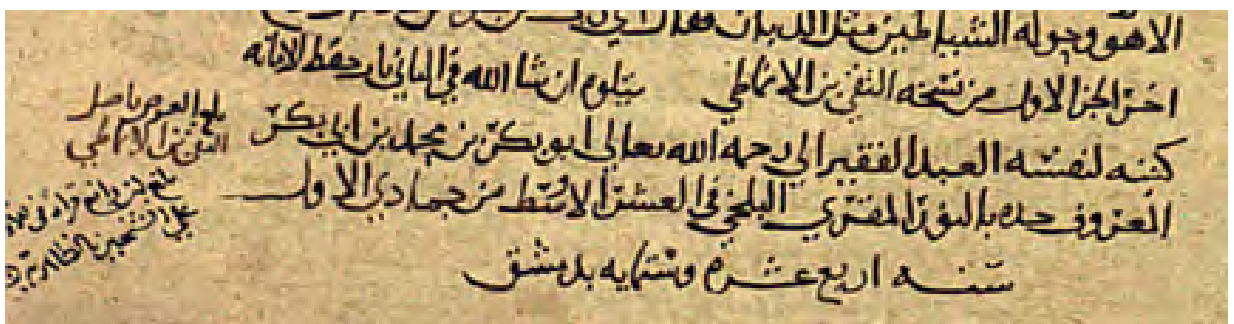 الاهو وحوله الشياطين مثل الذبان فقال
اخر الجزء الاول من نسخه التقي بن الانماطي يتلوه ان شا الله في الثاني باب حفظ الامانه
كتبه لنفسه العبد الفقير الى رحمه الله تعالى ابو بكر بن محمد بن ابي بكر
المعروف جده بالنور المقري البلخي في العشر الاوسط من جمادي الاول
سنه اربع عشره وستمايه بدمشق
بلغ العرض باصل
التقي بن الانماطي
على الشيخين